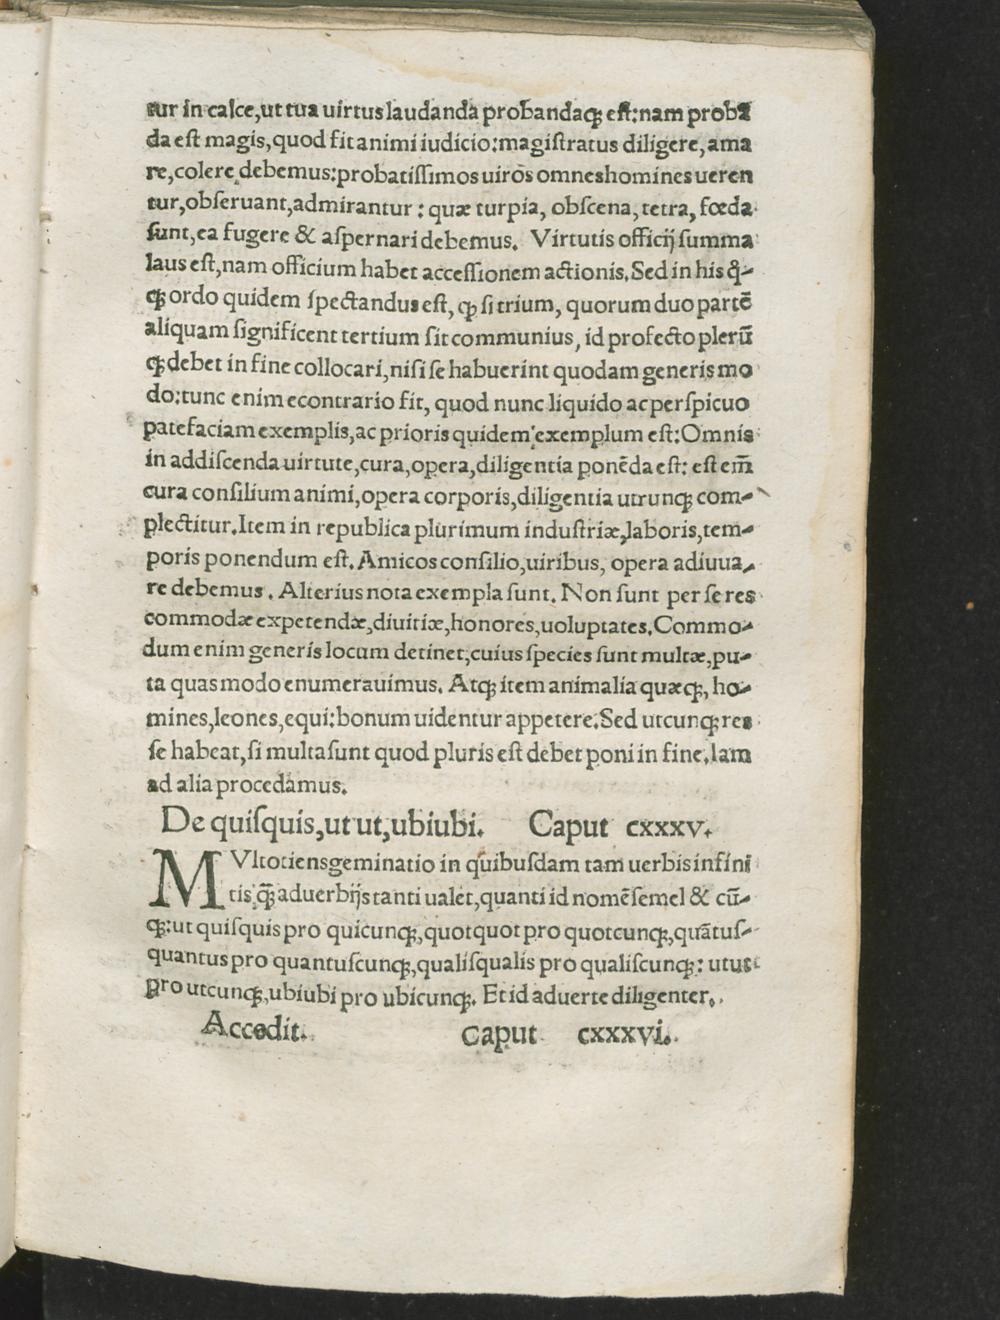 tur in calce,ut tua uirtus laudanda probandaq; eſt:nam probā
da eſt magis,quod fit animi iudicio:magiſtratus diligere,ama
re,colere debemus:probatiſſimos uiros omnes homines ueren
tur,obſeruant,admirantur: quæ turpia, obſcena, tetra, fœda
ſunt,ea fugere & aſpernari debemus. Virtutis officij ſumma
laus eſt,nam officium habet acceſſionem actionis.Sed in his q̃-
q; ordo quidem ſpectandus eſt, ꝙ ſi trium, quorum duo partē
aliquam ſignificent tertium ſit communius, id profecto plerū
q; debet in fine collocari,niſi ſe habuerint quodam generis mo
do:tunc enim econtrario fit, quod nunc liquido ac perſpicuo
patefaciam exemplis,ac prioris quidem exemplum eſt:Omnis
in addiſcenda uirtute,cura,opera,diligentia ponēda eſt: eſt em̄
cura conſilium animi,opera corporis,diligentia utrunq; com-
plectitur.Item in republica plurimum induſtriæ,laboris,tem-
poris ponendum eſt.Amicos conſilio,uiribus, opera adiuua-
re debemus. Alterius nota exempla ſunt. Non ſunt per ſe res
commodæ expetendæ,diuitiæ,honores,uoluptates.Commo-
dum enim generis locum detinet,cuius ſpecies ſunt multæ,pu-
ta quas modo enumerauimus. Atq; item animalia quæq;, ho-
mines,leones,equi:bonum uidentur appetere.Sed utcunq; res
ſe habeat,ſi multa ſunt quod pluris eſt debet poni in fine.Iam
ad alia procedamus.
De quiſquis,ut ut,ubiubi. Caput cxxxv.
MVltotiens geminatio in quibuſdam tam uerbis infini
tis q̃ aduerbijs tanti ualet,quanti id nomē ſemel & cū-
q;:ut quiſquis pro quicunq;,quotquot pro quotcunq;,quātuſ-
quantus pro quantuſcunq;,qualiſqualis pro qualiſcunq;: utut
pro utcunq;,ubiubi pro ubicunq;. Et id aduerte diligenter.
Accedit. Caput cxxxvi.